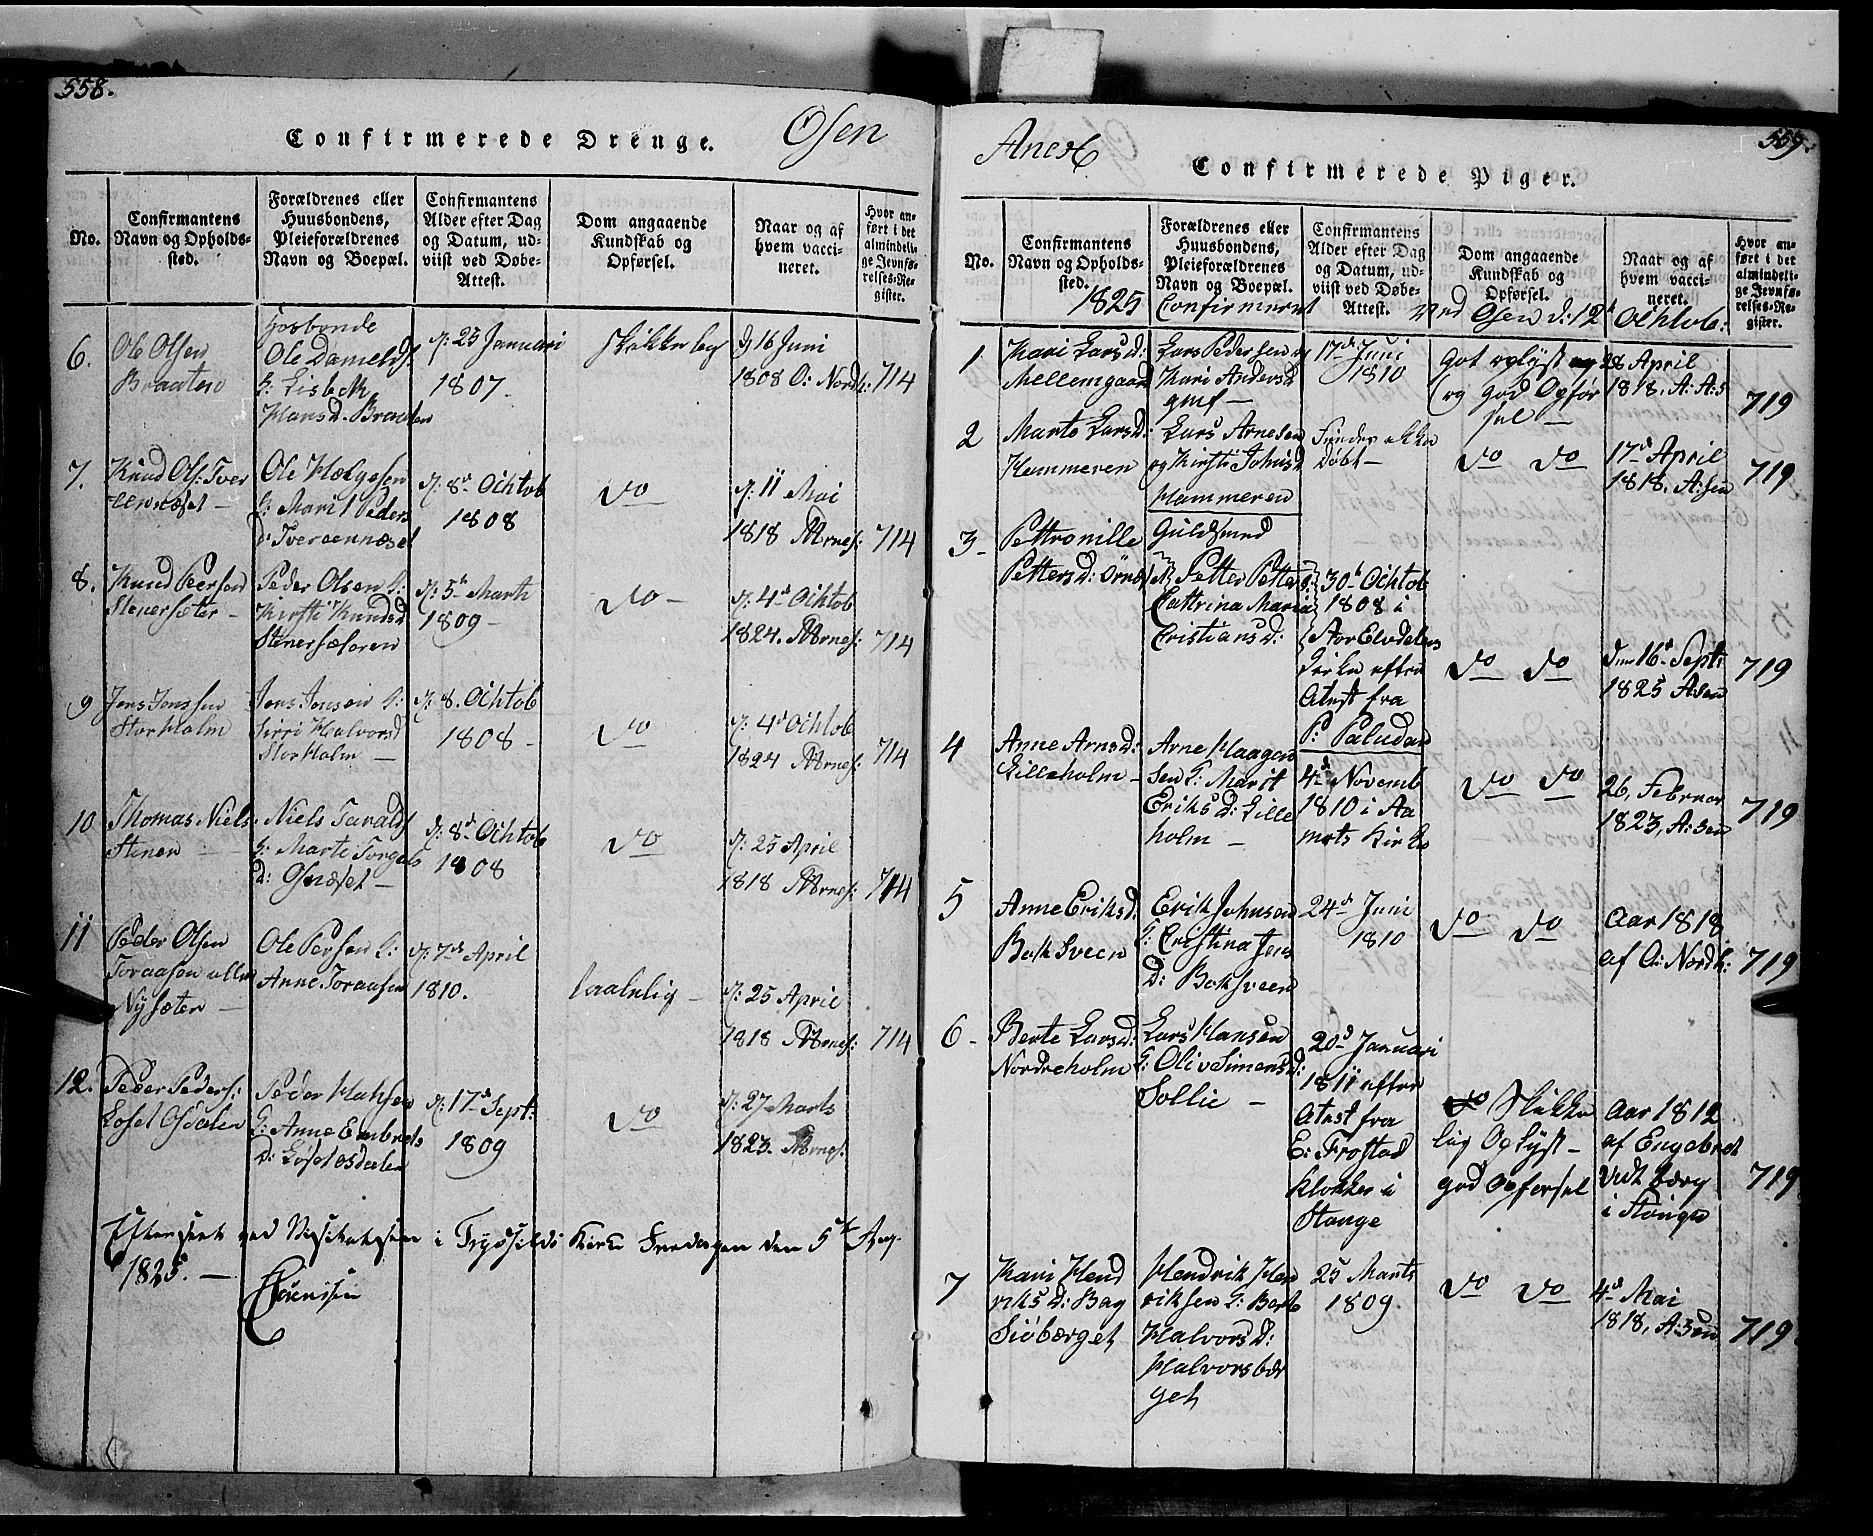 558.
Confirmerede Drenge. Osen
No.
Confirmantens
Navn og Opholds-
sted.
Forældrenes eller
Huusbondens,
Pleieforældrenes
Navn og Boepæl.
Confirmantens
Alder efter Dag
og Datum, ud-
viist ved Døbe-
Attest.
Dom angaaende
Kundskab og
Opførsel.
Naar og af
hvem vacci-
neret.
Hvor an-
ført i det
almindeli-
ge Jevnfø-
relses-Re-
gister.
6.
Ole Olsen
Braaten
Huusbonde
Ole
G: Lisbeth
Hansd. Braaten
d: 23 Januari
1807.
Skikkelig
d 16 Juni
1808 O: Nordh:
714
7.
Knud Ols: Tver
ennæset –
Ole Helgesen
G: Marit Peders
d: Tveraennæset
d: 8d Ochtob
1808
do
d: 11 Mai
1818 AArnes:
714
8.
Knud Peersen
Stenersæter –
Peder Olsen G:
Kirsti Knudsd
Stenersæteren
d: 5te Marti
1809 –
do –
d: 4d Ochtob
1824. AArnes:
714
9
Jens Jonssen
Storholm
Jens Jonsen G:
Sirri Halvorsd
Storholm –
d: 8. Ochtob
1808 –
do
d: 4d Ochtob
1824 AArnes:
714
10
Thomas Niels
Stenen –
Niels Taralds
G: Marte Torgels
d: Gnæset –
d: 8d Ochtob
1808
do
d: 25 April
1818 AArnes:
714
11
Peder Olsen
Toraasen eller
Nysæter –
Ole Persen G:
Anne Toraasen
d: 7de April
1810.
laalelig –
d: 25 April
1818 AArnes:
714
12.
Peder Peders:
Loset Osdalen
Peder Hansen
G: Anne Embrets
D: Loset osdalen
d: 17d Sept:
1809
do
d: 27 Marts
1823. AArnes:
Efterseet ved Visitatsen i Trysilds Kirke Fredagen den 5te Aug.
1825. –
Sörenssen
559.
Anex
Confirmerede Piger.
No.
Confirmantens
Navn og Opholds-
sted.
Forældrenes eller
Huusbondens,
Pleieforældrenes
Navn og Boepæl.
Confirmantens
Alder efter Dag
og Datum, ud-
viist ved Døbe-
Attest.
Dom angaaende
Kundskab og
Opførsel.
Naar og af
hvem vacci-
neret.
Hvor an-
ført i det
almindeli-
ge Jevnfø-
relses-Re-
gister.
1825 Confirmeret ved Osen d: 12t Ochtob:
1
Kari Larsd:
Mellemgaard
Lars Pedersen og
Kari Andersd
gmf –
17d Juni
1810
Got oplyst
og god Opför
sel –
28 April
1818. A: A:s
719
2
Marte Larsd:
Hemmeren
Lars Arnesen
og Kirsti Johnsd
Hammeren
Findes ikke
Döbt –
do do
17d April
1818. A:sen
719
3 –
Pettronille
Pettersd: Örnes
Guldsmed
Petter Petters:
Cattrina Maria
Cristiansd:
30te Ochtob
1808 i
Stor Elvdalens
Kirke efter
Atest fra
P: Paludan
do do
den 16d Sept:
1825 A:sen
719
4
Anne Arnsd:
Lilleholm –
Arne Haagen
sen G: Marit
Eriksd: Lille
holm –
4d Novemb
1810 i Aa
mots Kirke
do do
26, Februar
1823, A:sen
719
5
Anne Eriksd:
Baksveen
Erik Johnsen
G: Cristina Jens
D: Baksveen
24d Juni
1810
do do
Aar 1818
af O: Nordh:
719
6 –
Berte Larsd:
Nordreholm
Lars Hansen
G: Oliv Simensd:
Sollie –
20d Januari
1811 efter
Atest fra
E: Frostad
Klokker i
Stange
Skikke
lig Oplyst –
god Opförsel
Aar 1812
af Engebret
Vidt bærg
i Stange
719
7
Kari Hend
riksd: Bag
Siöbærget
Hendrik Hen
riksen G: Berte
Halvorsd:
Halvorsbær
get
25 Marts
1809.
do do
4d Mai
1818, A:sen
719